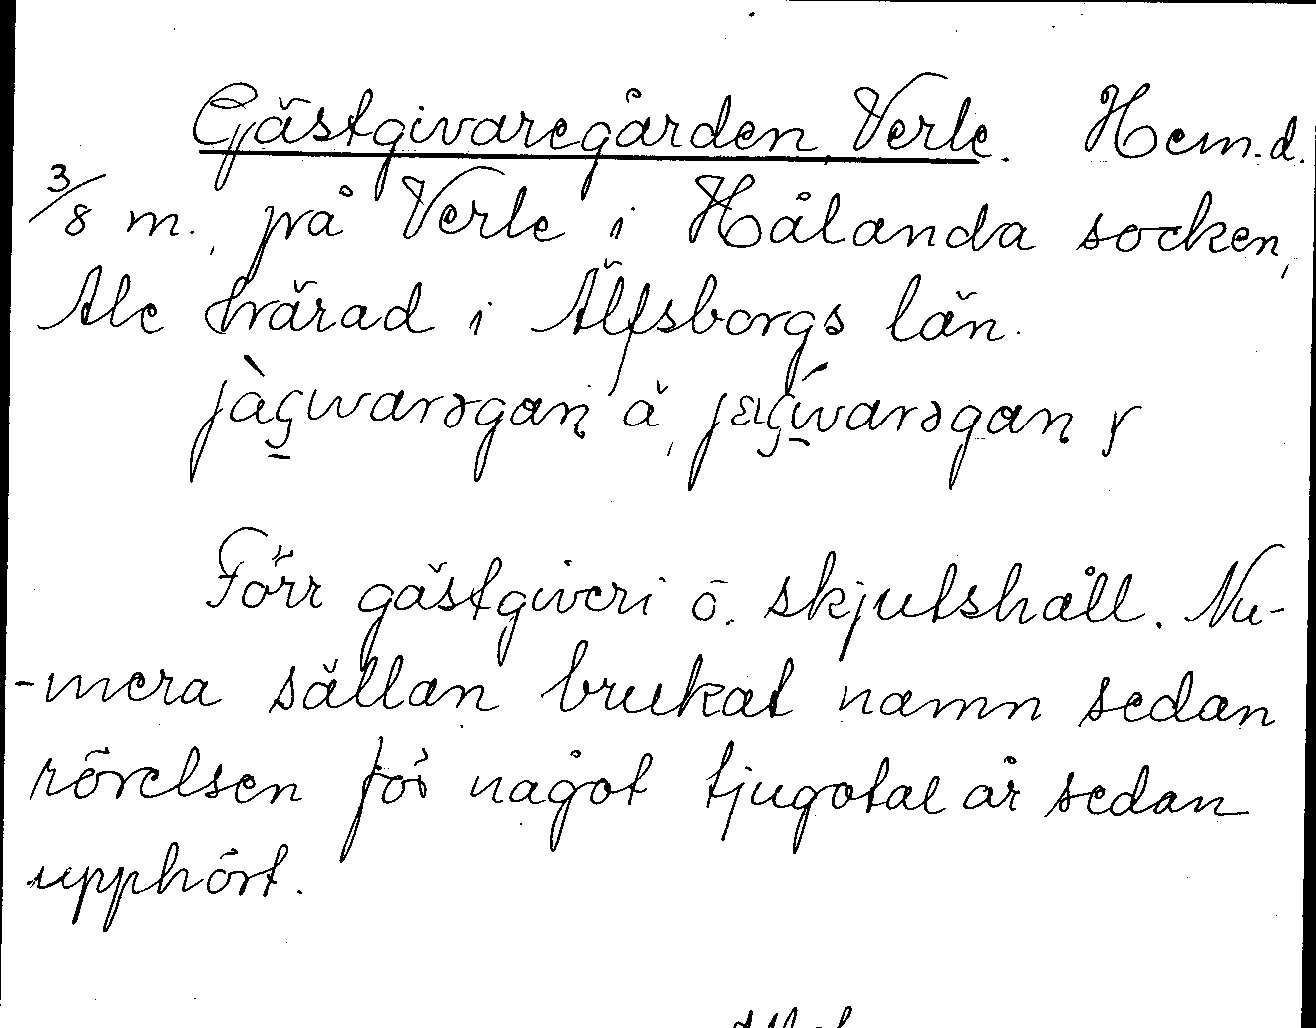 Gästgivaregården Verle. Hem.d.
3/8 m., på Verle i Hålanda socken,
Ale härad i Älfsborgs län.
å
Förr gästgiveri o. skjutshåll. Nu-
-mera sällan brukat namn sedan
rörelsen för något tjugotal år sedan
upphört.